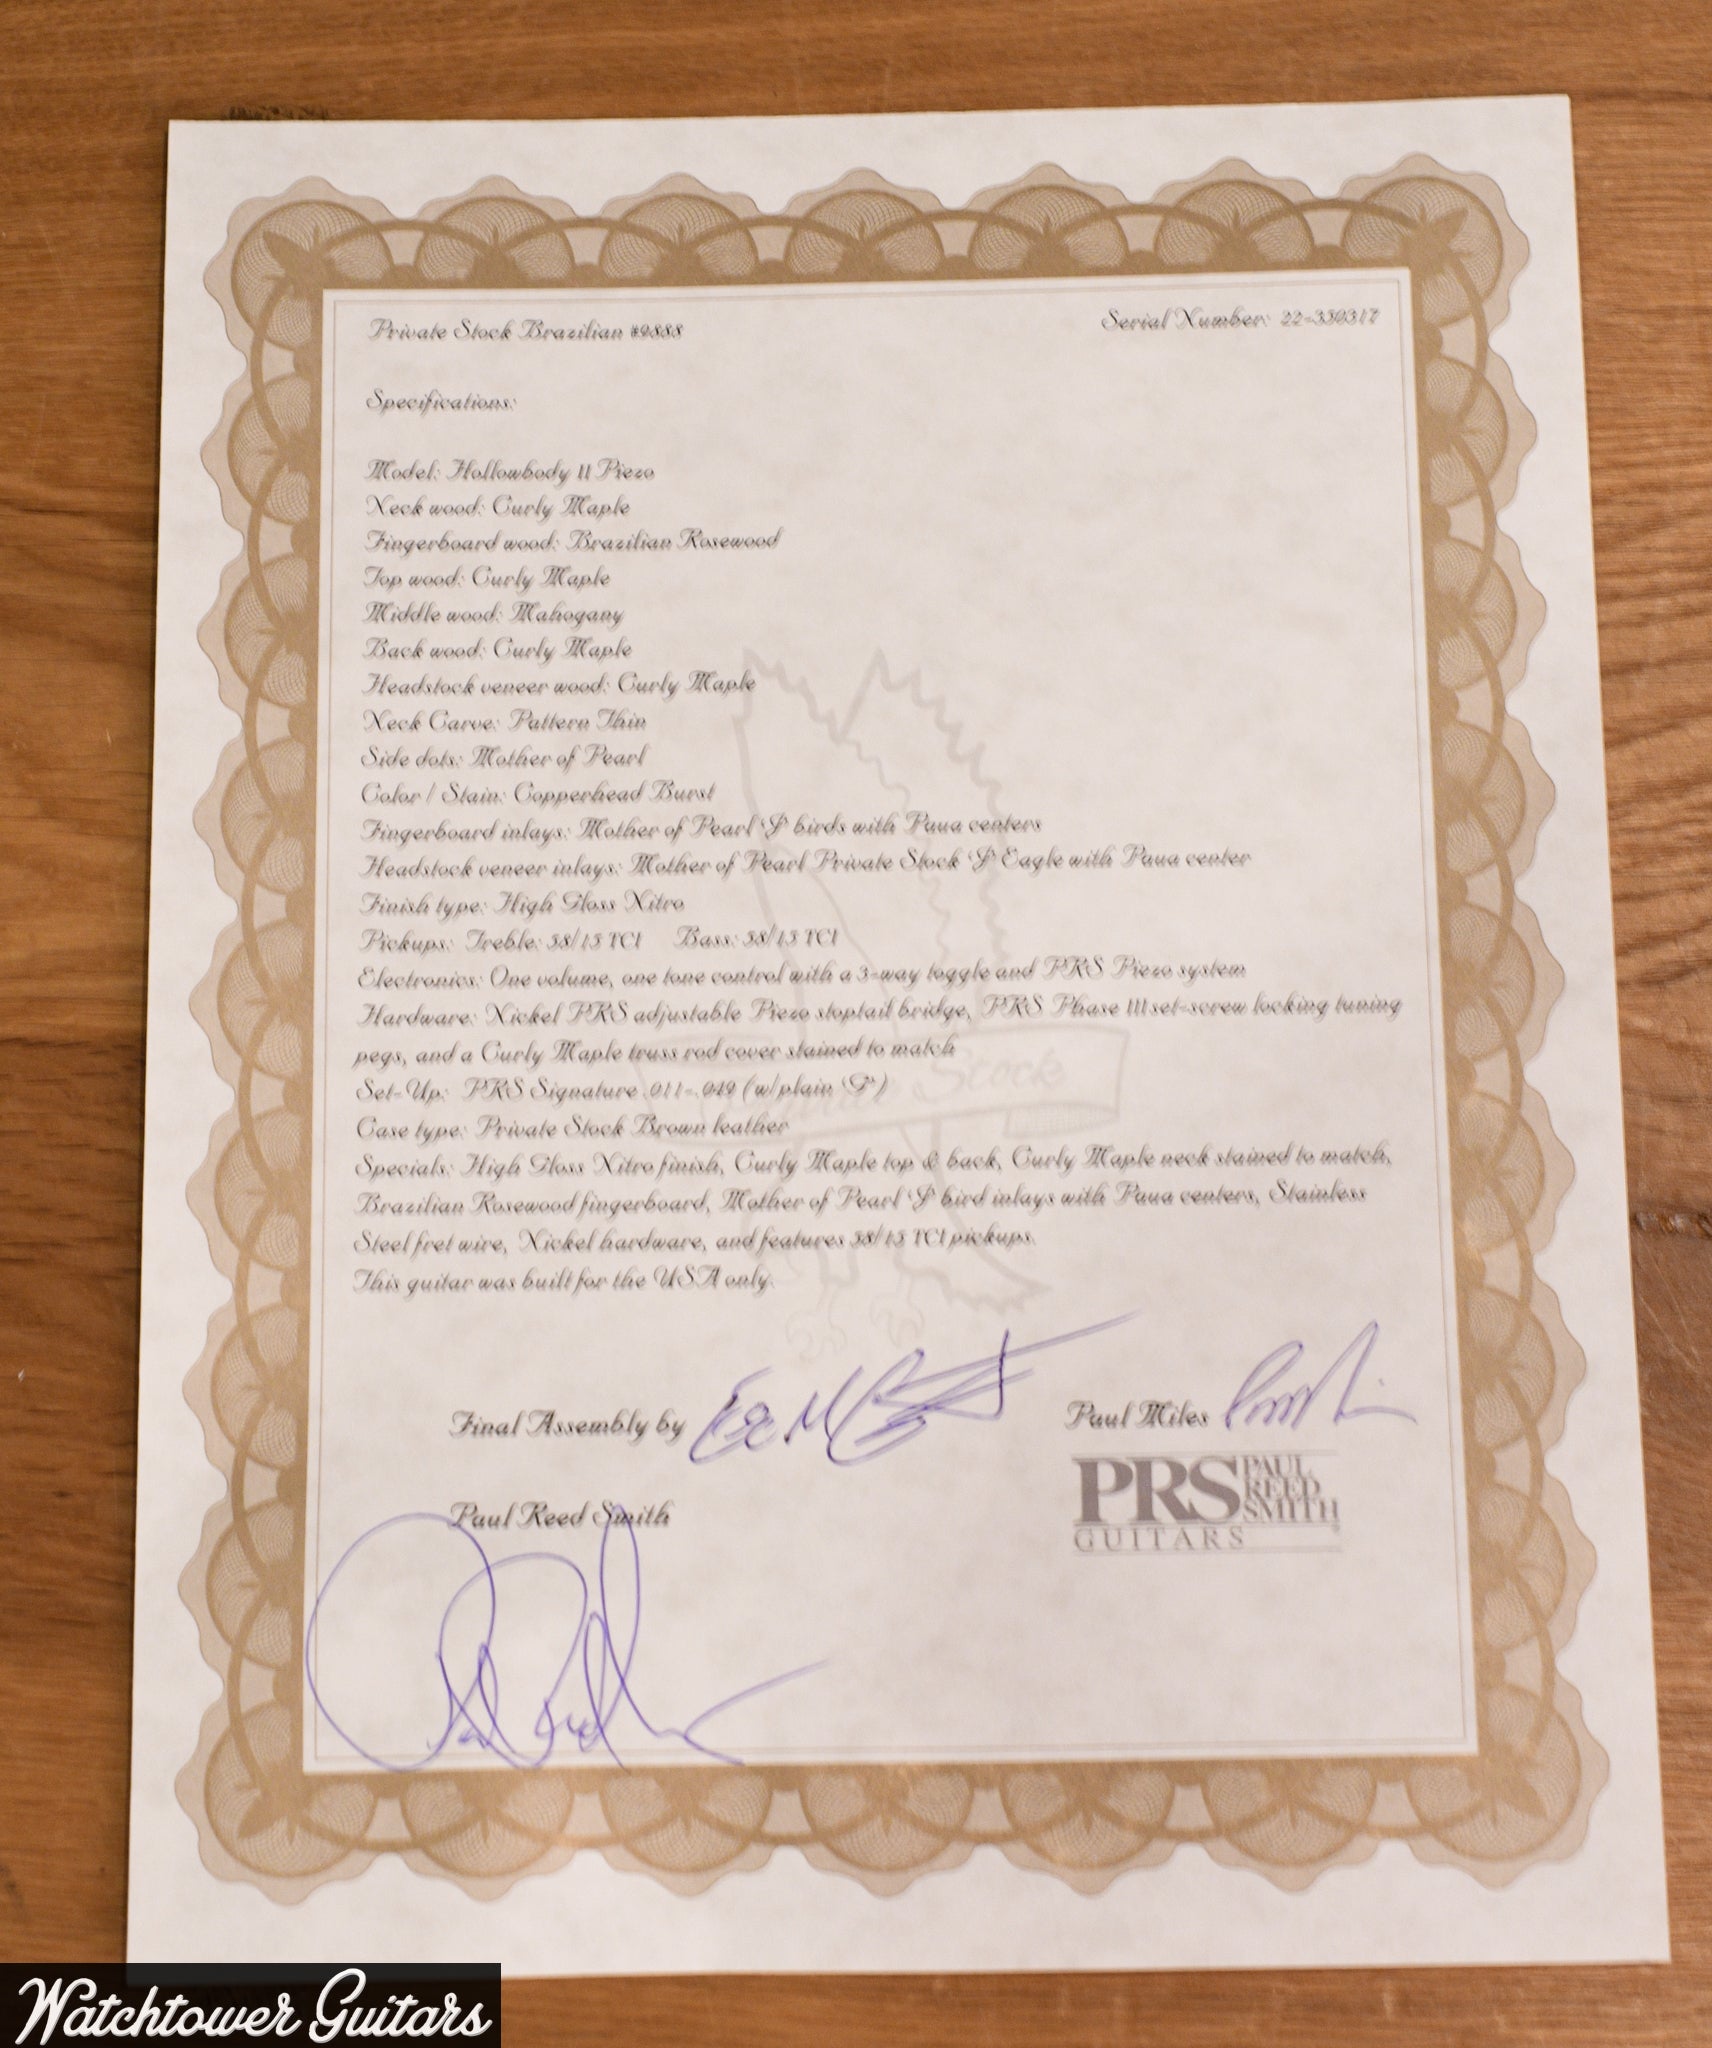 Private Stock Brazilian #9888
Serial Number: 22-350317
Specifications:
Model: Hollowbody II Piezo
Neck wood: Curly Maple
Fingerboard wood: Brazilian Rosewood
Top wood: Curly Maple
Middle wood: Mahogany
Back wood: Curly Maple
Headstock veneer wood: Curly Maple
Neck Carve: Pattern Thin
Side dots: Mother of Pearl
Color / Stain: Copperhead Burst
Fingerboard inlays: Mother of Pearl 'J' birds with Paua centers
Headstock veneer inlays: Mother of Pearl Private Stock 'J' Eagle with Paua center
Finish type: High Gloss Nitro
Pickups: Treble: 58/15 TCI Bass: 58/15 TCI
Electronics: One volume, one tone control with a 3-way toggle and PRS Piezo system
Hardware: Nickel PRS adjustable Piezo stoptail bridge, PRS Phase III set-screw locking tuning
pegs, and a Curly Maple truss rod cover stained to match
Set-Up: PRS Signature .011-.049 (w/plain 'G')
Case type: Private Stock Brown leather
Specials: High Gloss Nitro finish, Curly Maple top & back, Curly Maple neck stained to match,
Brazilian Rosewood fingerboard, Mother of Pearl 'J' bird inlays with Paua centers, Stainless
Steel fret wire, Nickel hardware, and features 58/15 TCI pickups.
This guitar was built for the USA only.
Stock
Final Assembly by
Paul Miles
Paul Reed Smith
PRS PAUL REED SMITH
GUITARS
Watchtower Guitars